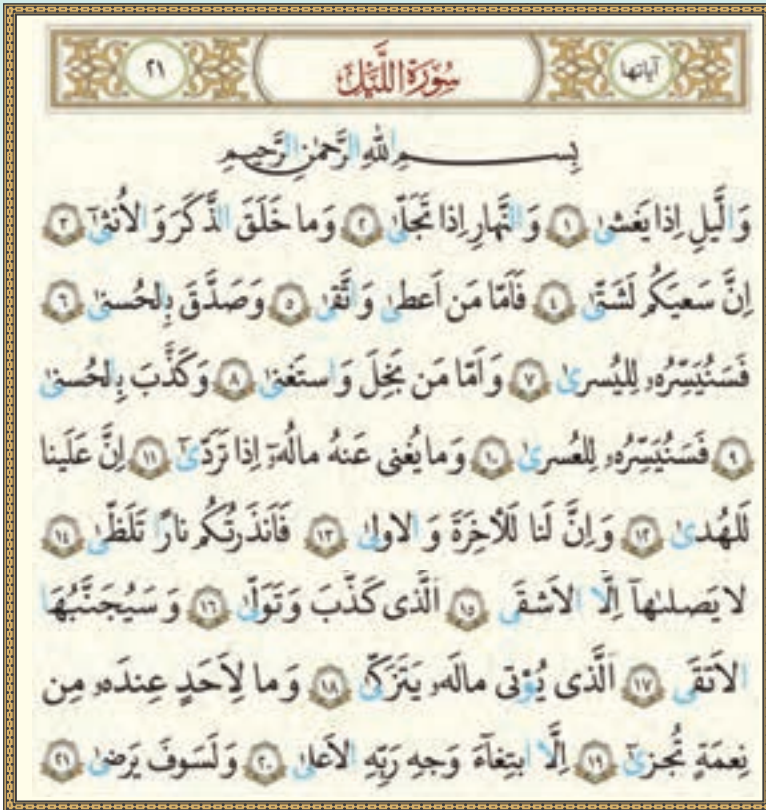 آیاتها سُورَةُ اللَّیلِ ٢١
بِسمِ اللّٰهِ الرَّحمٰنِ الرَّحیمِ
وَ الَّیلِ اِذا یَغشیٰ ١ وَ النَّهارِ اِذا تَجَلّیٰ ٢ وَ ما خَلَقَ الذَّکَرَ وَ الاُنثیٰٓ ٣
اِنَّ سَعیَکُم لَشَتّیٰ ٤ فَاَمّا مَن اَعطیٰ وَ اتَّقیٰ ٥ وَ صَدَّقَ بِالحُسنیٰ ٦
فَسَنُیَسِّرُهۥ لِلیُسریٰ ٧ وَ اَمّا مَن بَخِلَ وَ استَغنیٰ ٨ وَ کَذَّبَ بِالحُسنیٰ
٩ فَسَنُیَسِّرُهۥ لِلعُسریٰ ١٠ وَ ما یُغنی عَنهُ مالُهۥٓ اِذا تَرَدّیٰٓ ١١ اِنَّ عَلَینا
لَلهُدیٰ ١٢ وَ اِنَّ لَنا لَلآخِرَةَ وَ الاولیٰ ١٣ فَاَنذَرتُکُم نارًا تَلَظّیٰ ١٤
لا یَصلیٰهآ اِلَّا الاَشقَی ١٥ اَلَّذی کَذَّبَ وَ تَوَلّیٰ ١٦ وَ سَیُجَنَّبُهَا
الاَتقَی ١٧ اَلَّذی یُؤتی مالَهۥ یَتَزَکّیٰ ١٨ وَ ما لِاَحَدٍ عِندَهۥ مِن
نِعمَةٍ تُجزیٰٓ ١٩ اِلَّا ابتِغآءَ وَجهِ رَبِّهِ الاَعلیٰ ٢٠ وَ لَسَوفَ یَرضیٰ ٢١